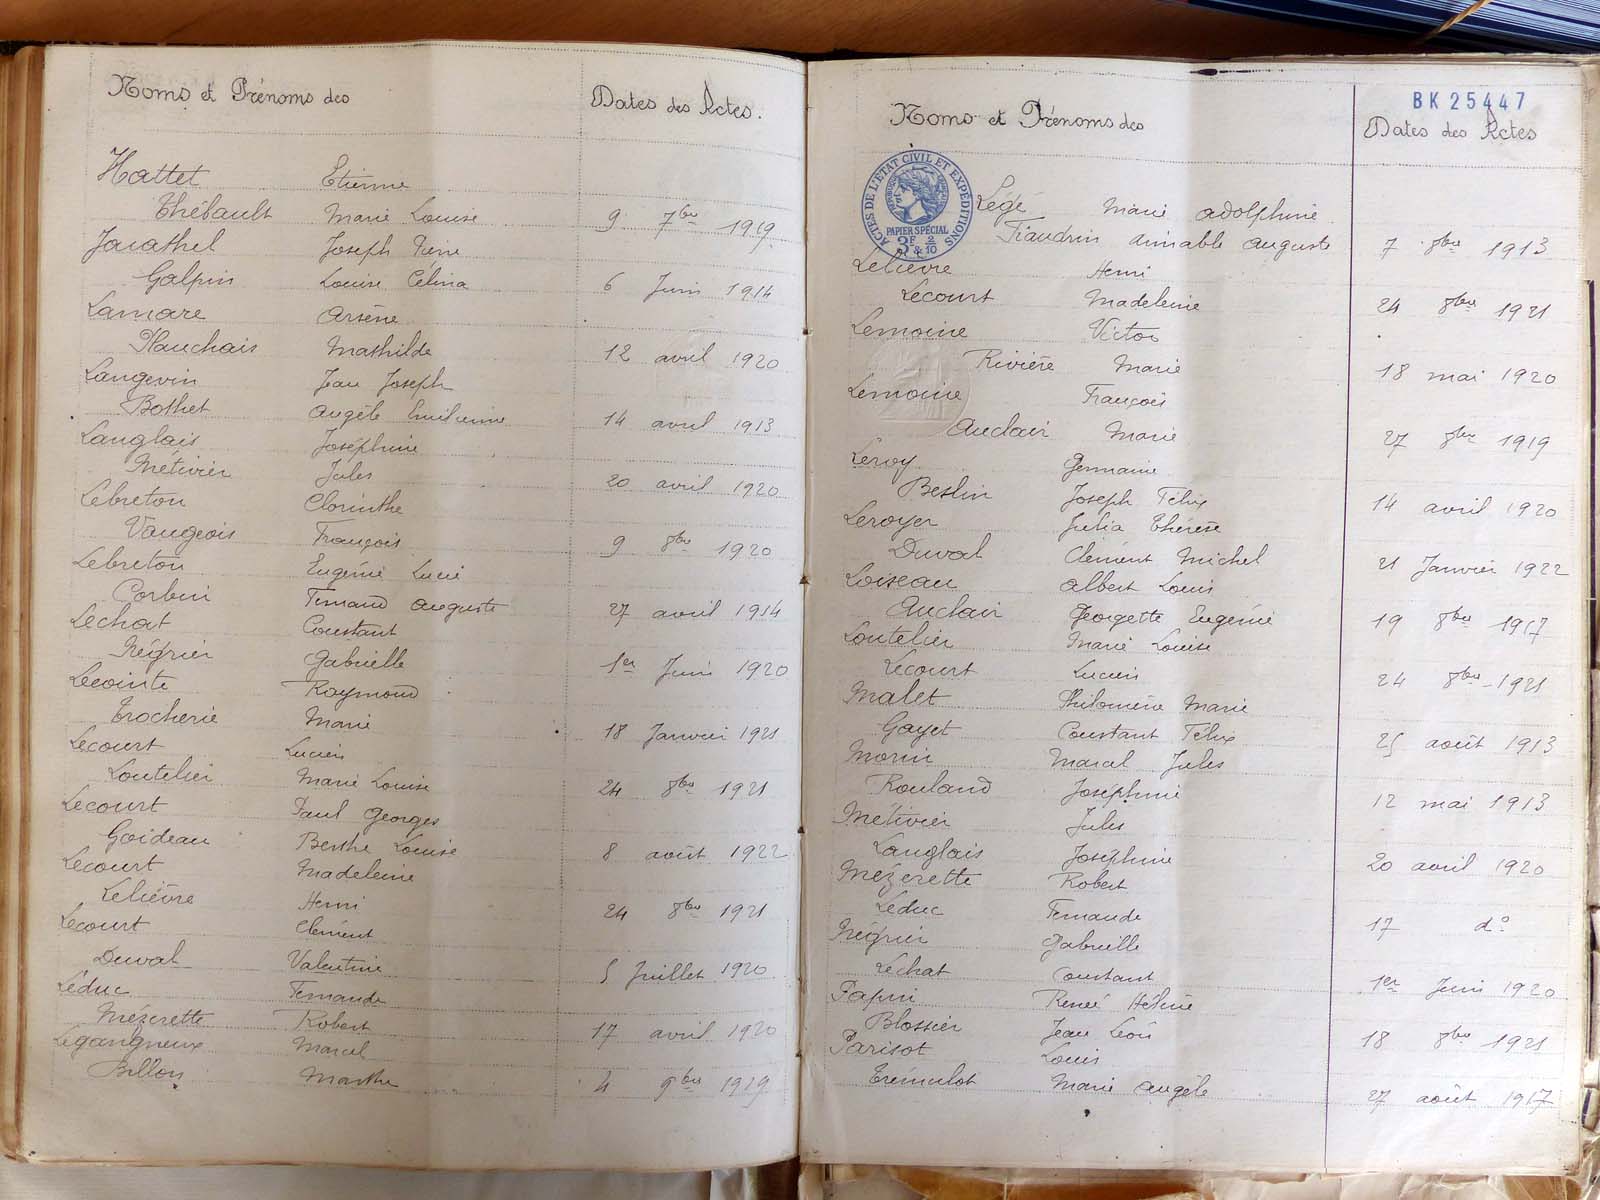 Noms et Prénoms des Dates des Actes.
Hattet Etienne
Thébault Marie Louise 9 7bre 1919
Jarathel Joseph Pierre
Galpin Louise Célina 6 Juin 1914
Lamare Arsène
Plauchais Mathilde 12 avril 1920
Langevin Jean Joseph
Bothet Angèle Emilienne 14 avril 1913
Langlais Joséphine
Métivier Jules 20 avril 1920
Lebreton Clorinthe
Vaugeois François 9 8bre 1920
Lebreton Eugénie Lucie
Corbin Fernand Auguste 27 avril 1914
Lechat Constant
Négrier Gabrielle 1er Juin 1920
Lecointe Raymond
Trocherie Marie 18 Janvier 1921
Lecourt Lucien
Loutelier Marie Louise 24 8bre 1921
Lecourt Paul Georges
Goideau Berthe Louise 8 août 1922
Lecourt Madeleine
Lelièvre Henri 24 8bre 1921
Lecourt Clément
Duval Valentine 5 Juillet 1920
Leduc Fernande
Mézerette Robert 17 avril 1920
Legangneux Marcel
Billon Marthe 4 9bre 1919
BK 25447
Noms et Prénoms des Dates des Actes
ACTES DE L'ETAT CIVIL ET EXPÉDITIONS
PAPIER SPÉCIAL
3F & 2/10
Légé Marie Adolphine
Fiaudrin Aimable Auguste 7 8bre 1913
Lelièvre Henri
Lecourt Madeleine 24 8bre 1921
Lemoine Victor
Rivière Marie 18 mai 1920
Lemoine François
Auclair Marie 27 8bre 1919
Leroy Germaine
Beslin Joseph Félix 14 avril 1920
Leroyer Julia Thérèse
Duval Clément Michel 21 Janvier 1922
Loiseau Albert Louis
Auclair Georgette Eugénie 19 8bre 1917
Loutelier Marie Louise
Lecourt Lucien 24 8bre 1921
Malet Philomène Marie
Gayet Constant Félix 25 août 1913
Morin Marcel Jules
Rouland Joséphine 12 mai 1913
Métivier Jules
Langlais Joséphine 20 avril 1920
Mézerette Robert
Leduc Fernande 17 d°
Négrier Gabrielle
Lechat Constant 1er Juin 1920
Papin Renée Hélène
Blossier Jean Léon 18 8bre 1921
Parisot Louis
Trémulot Marie Angèle 27 août 1917